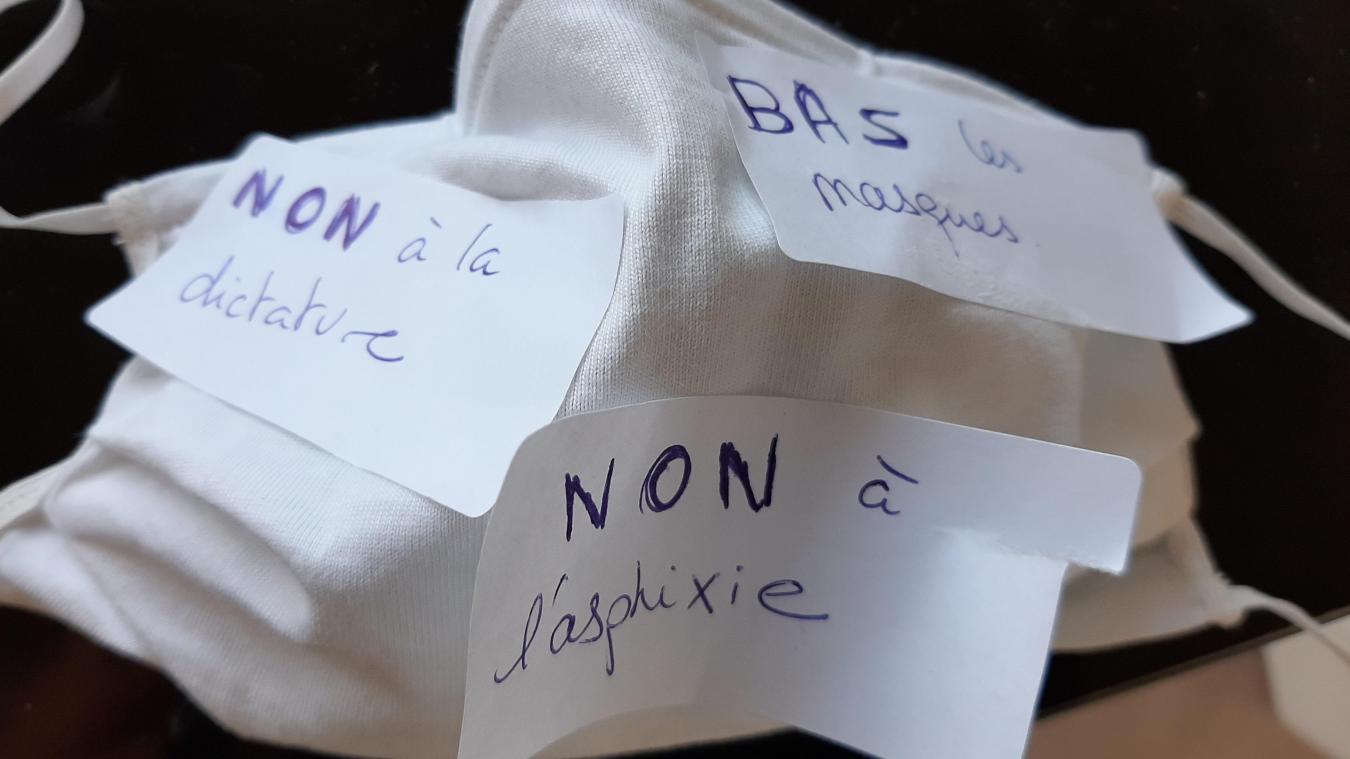 NON à la
dictature
BAS les
masques
NON à
l'asphixie